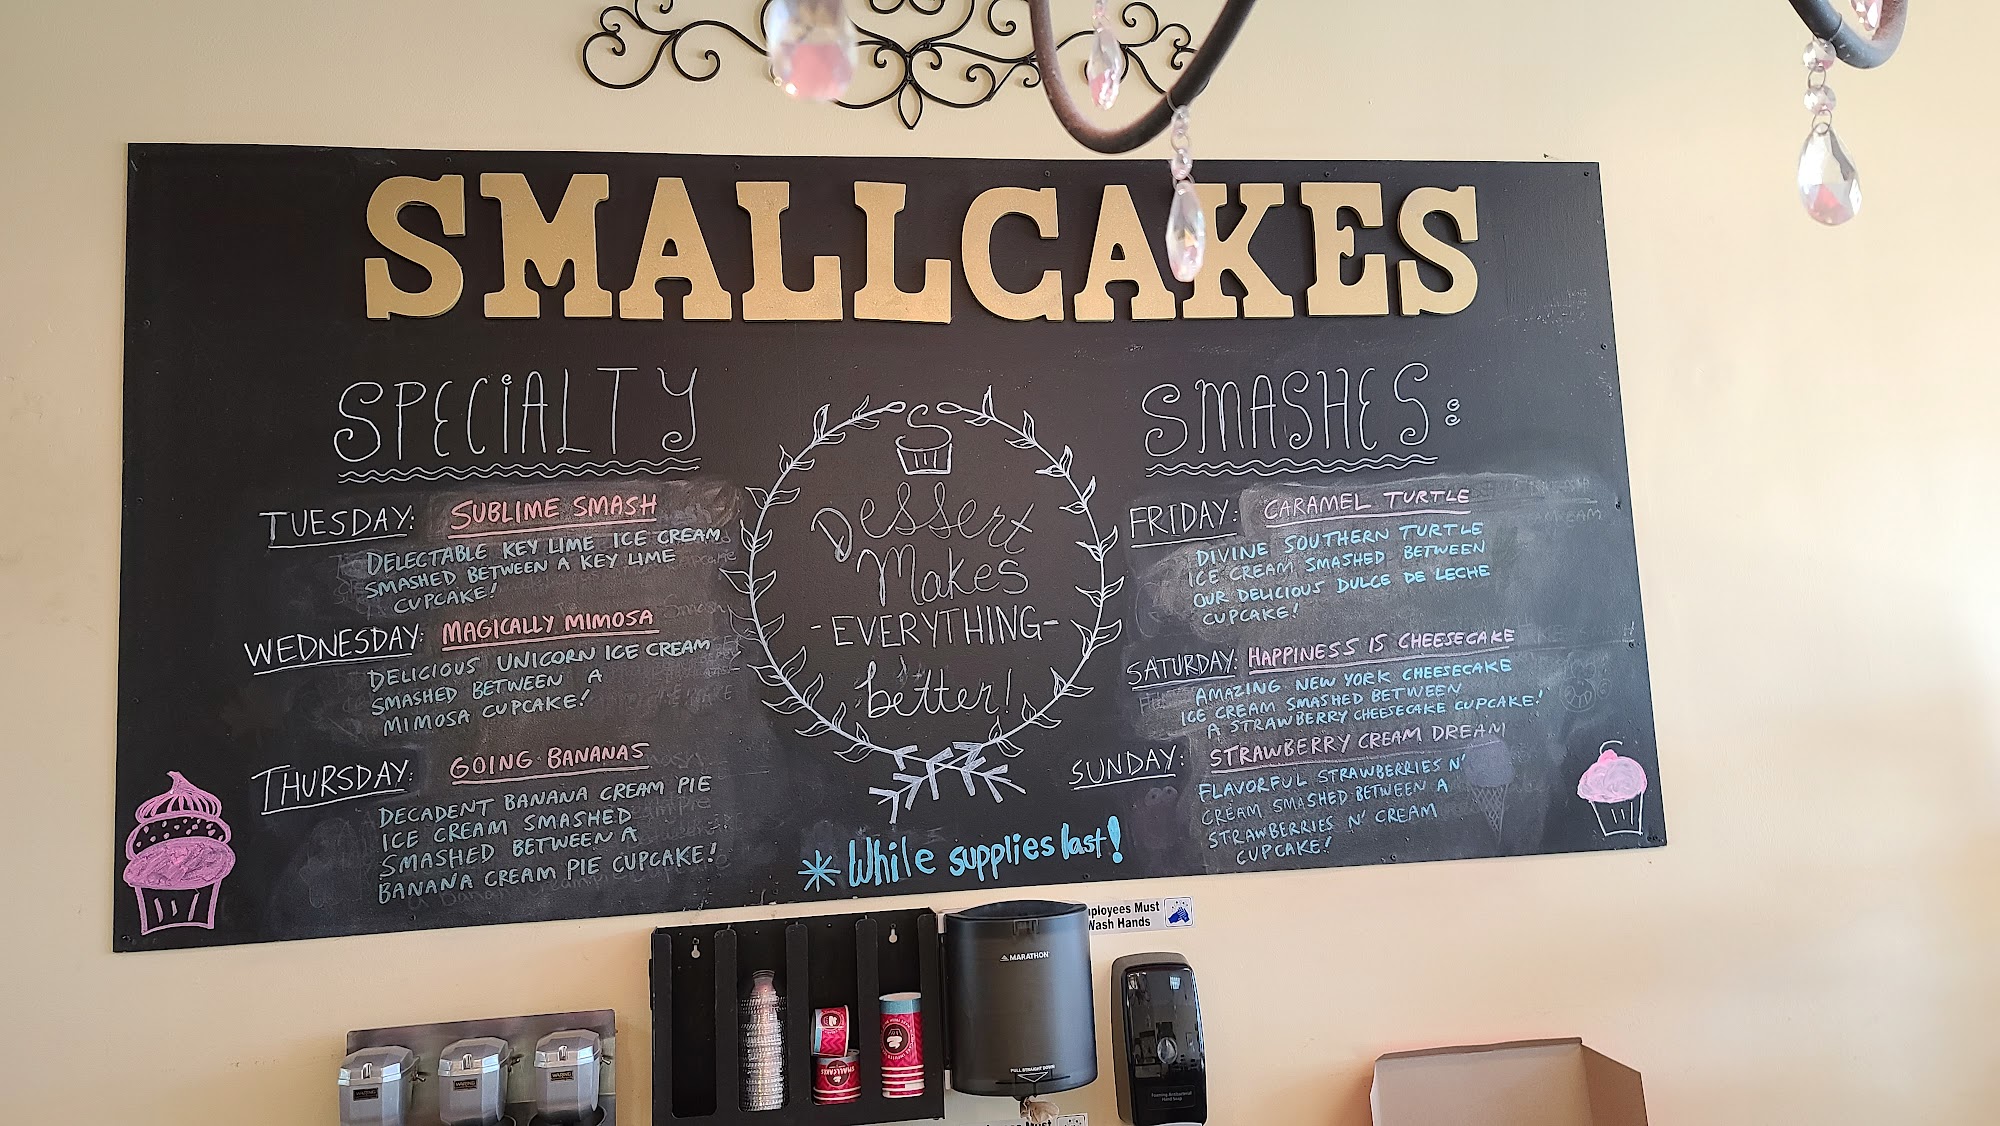 SMALLCAKES
SPECIALTY SMASHES:
TUESDAY: SUBLIME SMASH
DELECTABLE KEY LIME ICE CREAM
SMASHED BETWEEN A KEY LIME
CUPCAKE!
WEDNESDAY: MAGICALLY MIMOSA
DELICIOUS UNICORN ICE CREAM
SMASHED BETWEEN A
MIMOSA CUPCAKE!
THURSDAY: GOING BANANAS
DECADENT BANANA CREAM PIE
ICE CREAM SMASHED
SMASHED BETWEEN A
BANANA CREAM PIE CUPCAKE!
Dessert
Makes
-EVERYTHING-
better!
FRIDAY: CARAMEL TURTLE
DIVINE SOUTHERN TURTLE
ICE CREAM SMASHED BETWEEN
OUR DELICIOUS DULCE DE LECHE
CUPCAKE!
SATURDAY: HAPPINESS IS CHEESECAKE
AMAZING NEW YORK CHEESECAKE
ICE CREAM SMASHED BETWEEN
A STRAWBERRY CHEESECAKE CUPCAKE!
SUNDAY: STRAWBERRY CREAM DREAM
FLAVORFUL STRAWBERRIES N'
CREAM SMASHED BETWEEN A
STRAWBERRIES N' CREAM
CUPCAKE!
*While supplies last!
Must
Wash Hands
MARATHON
PULL STRAIGHT DOWN
SMALLCAKES
WARNING
WARNING
WARNING
Must